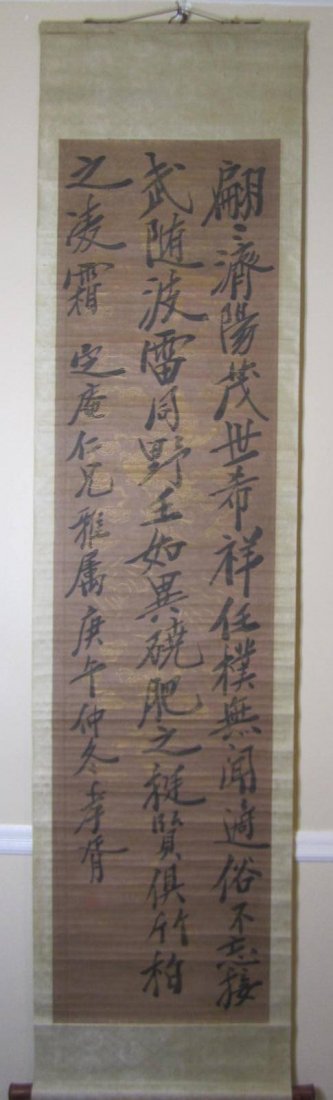 翩〻濟陽茂世希祥任樸無聞適俗不忘接
武随波雷同野王如異磽肥之挺質俱竹柏
之凌霜 定庵仁兄雅属庚午仲冬孝胥